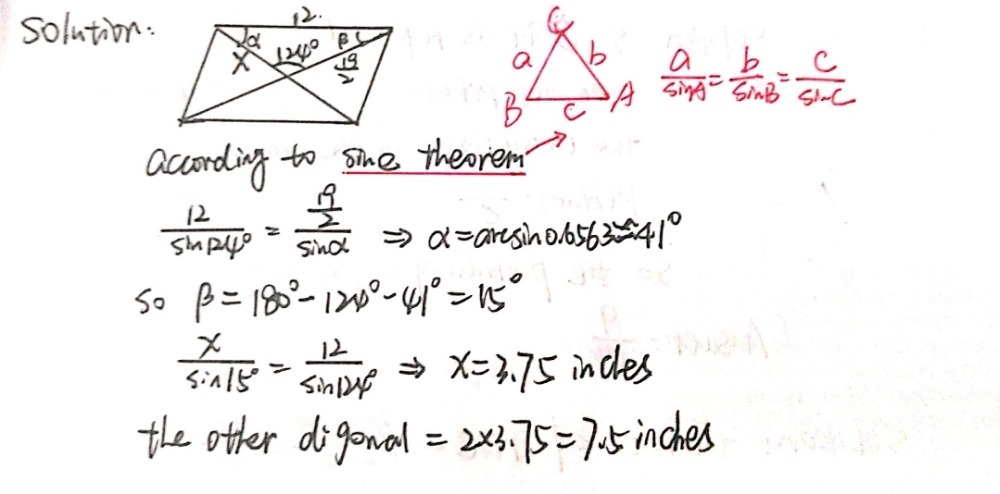 Solution:
12.
α 124° β c
X 19/2
C
a b
B c A
a/sinA = b/sinB = c/sinC
according to sine theoriem
12/sin124° = (19/2)/sinα ⇒ α=arcsin0.6563≈41°
so β = 180°-124°-41° = 15°
x/sin15° = 12/sin124° ⇒ x=3.75 inches
the other digonal = 2×3.75=7.5 inches